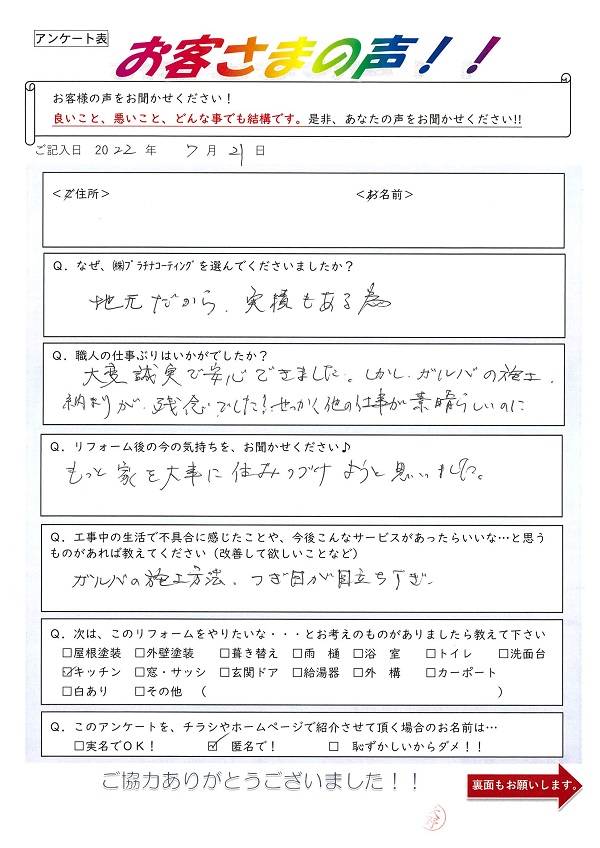 アンケート表
お客さまの声！！
お客様の声をお聞かせください！
良いこと、悪いこと、どんな事でも結構です。是非、あなたの声をお聞かせください!!
ご記入日 2022 年 7 月 21 日
＜ご住所＞ ＜お名前＞
Q．なぜ、㈱ﾌﾟﾗﾁﾅｺｰﾃｨﾝｸﾞを選んでくださいましたか？
地元だから、実積もある為
Q．職人の仕事ぶりはいかがでしたか？
大変誠実で安心できました。しかし、ガルバの施工、
納まりが、残念でした！せっかく他の仕事が素晴らしいのに
Q．リフォーム後の今の気持ちを、お聞かせください♪
もっと家を大事に住みつづけようと思いました。
Q．工事中の生活で不具合に感じたことや、今後こんなサービスがあったらいいな…と思う
ものがあれば教えてください（改善して欲しいことなど）
ガルバの施工方法、つぎ目が目立ちすぎ、
Q．次は、このリフォームをやりたいな・・・とお考えのものがありましたら教えて下さい
□屋根塗装 □外壁塗装 □葺き替え □雨 樋 □浴 室 □トイレ □洗面台
☑キッチン □窓・サッシ □玄関ドア □給湯器 □外 構 □カーポート
□白あり □その他 （ ）
Q．このアンケートを、チラシやホームページで紹介させて頂く場合のお名前は…
□実名でOK！ ☑ 匿名で！ □ 恥ずかしいからダメ！！
ご協力ありがとうございました！！
裏面もお願いします。